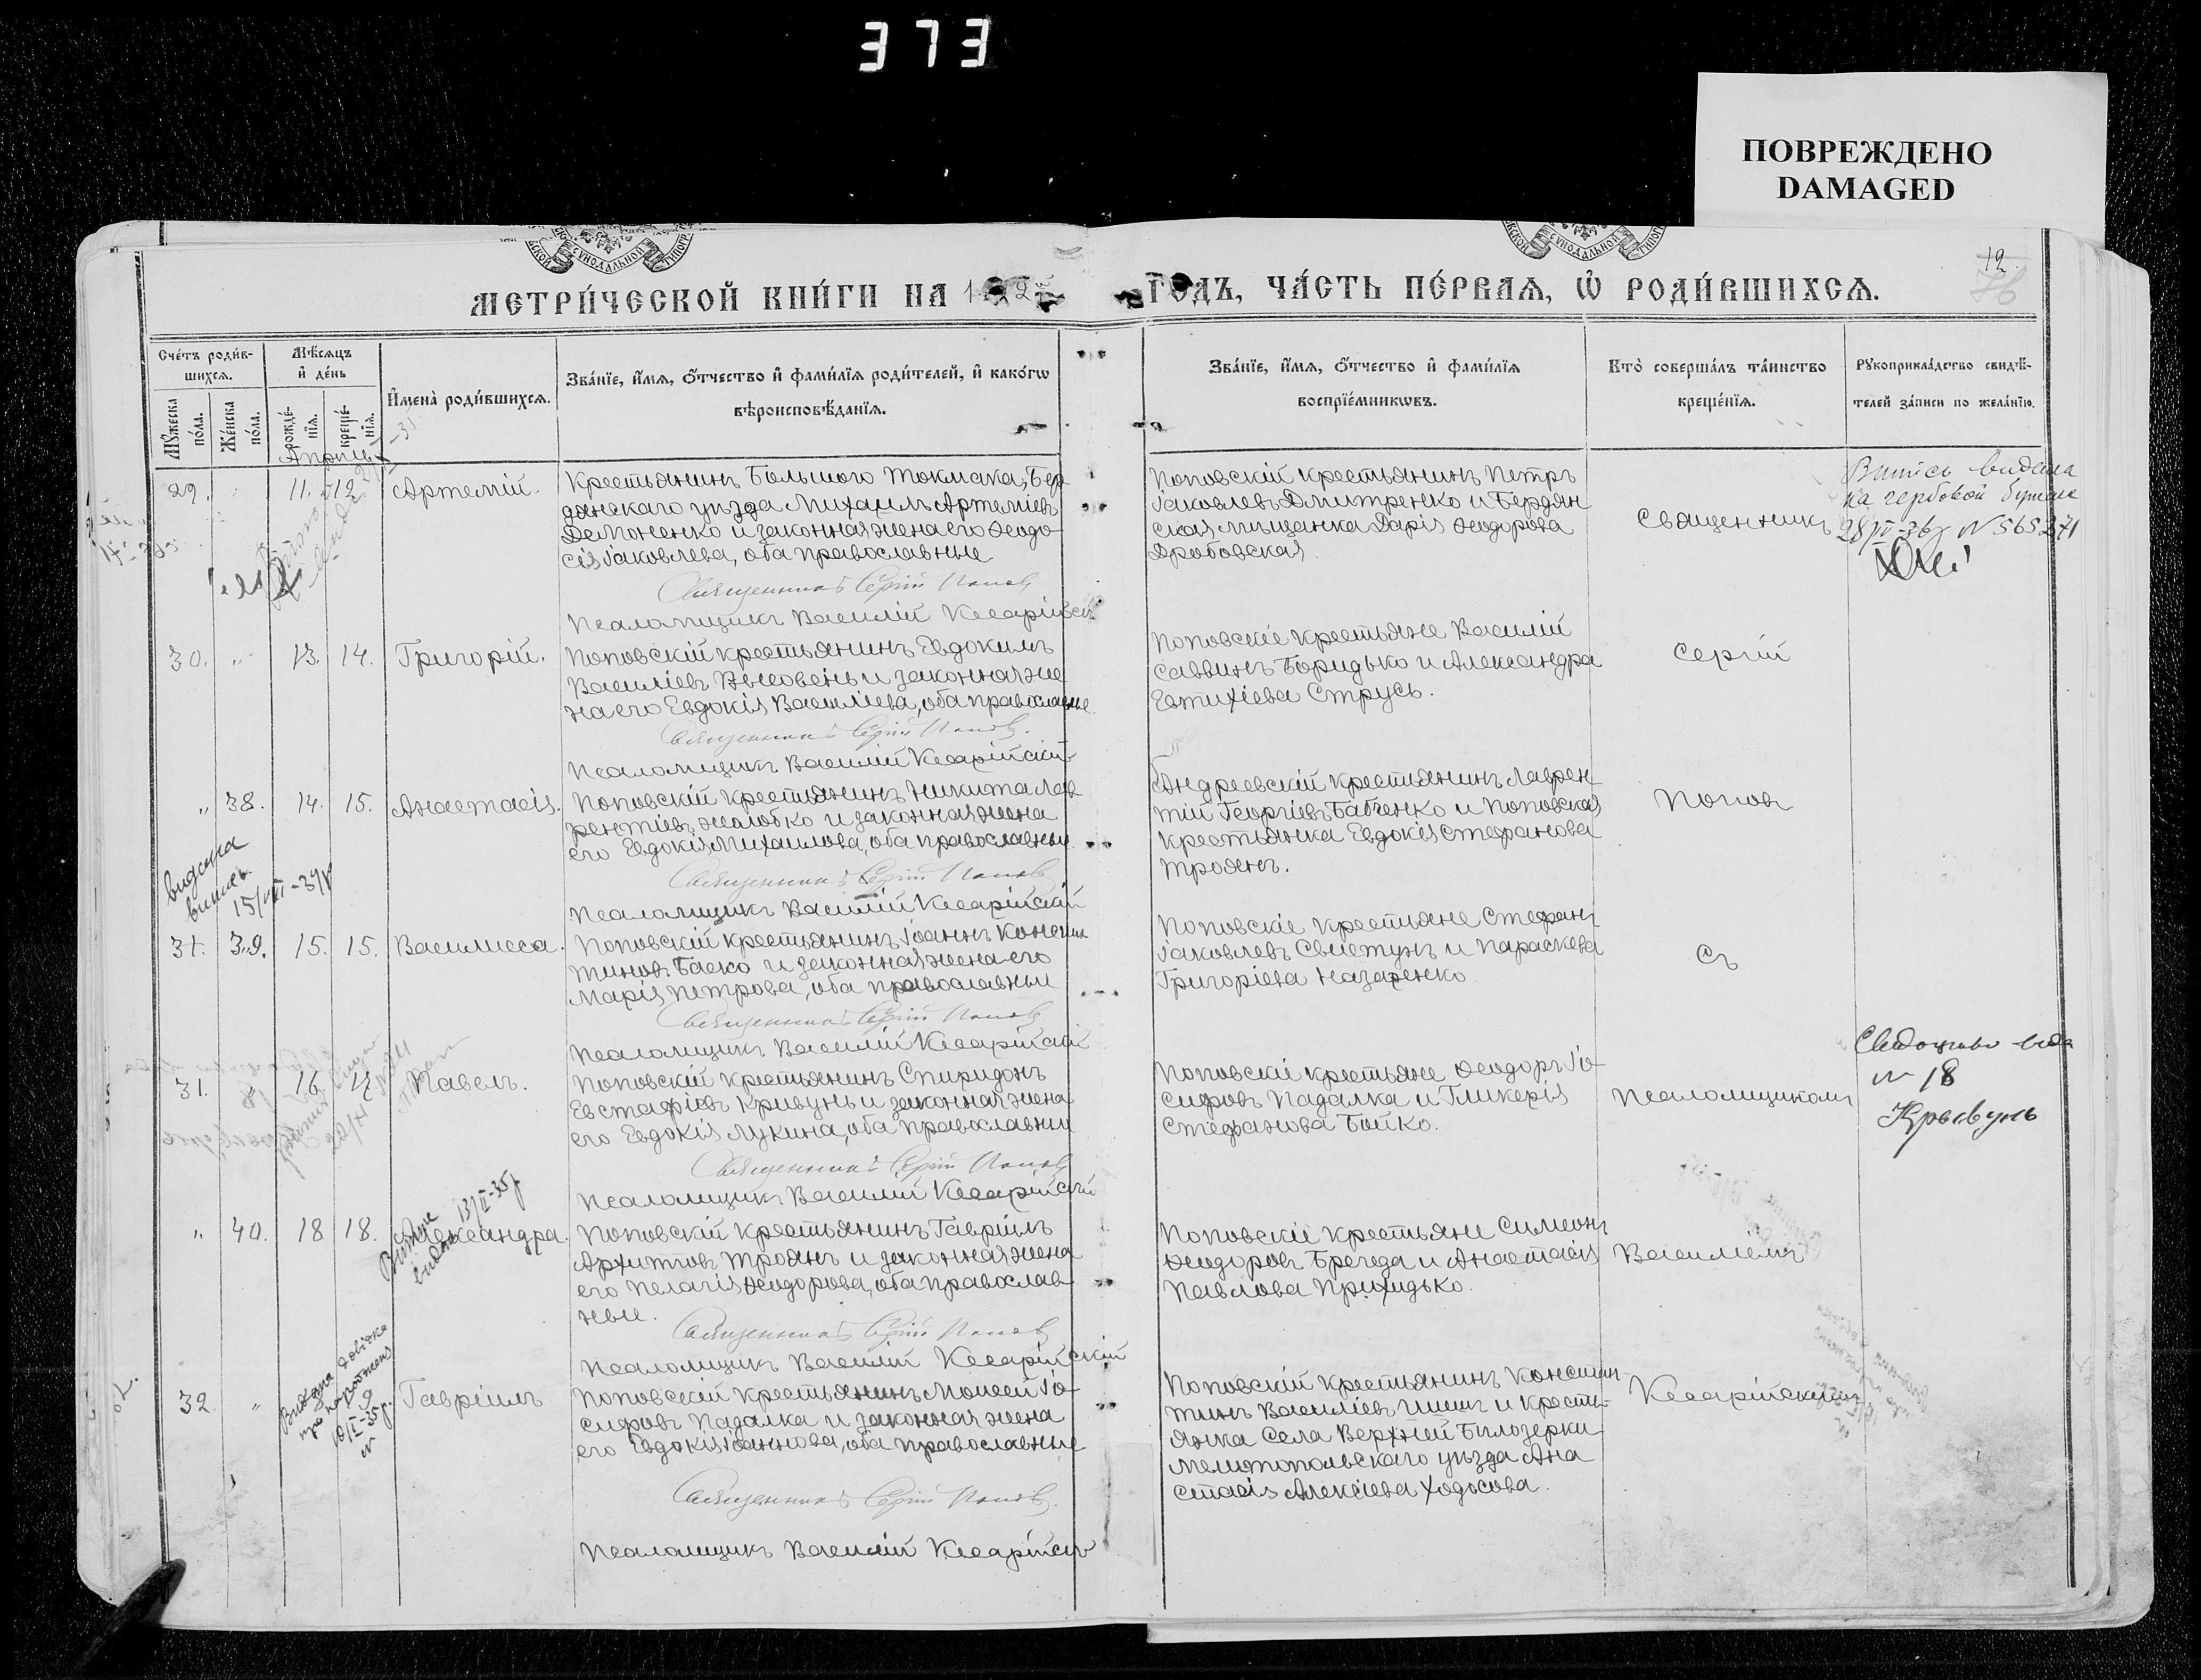 373
ПОВРЕЖДЕНО
DAMAGED
СѴНОДАЛЬНОЙ
СѴНОДАЛЬНОЙ
12
76
МЕТРИ́ЧЕСКОЙ КНИ́ГИ НА
ГОДЪ, ЧА́СТЬ ПЕ́РВАЯ, Ѡ҆ РОДИ́ВШИХСЯ.
Сче́тъ роди́в-
шихся.
Мѣ́сяцъ
и҆ де́нь
И҆мена̀ роди́вшихся.
Зва́нїе, и҆́мя, ѻ҆́тчество и҆ фами́лїя роди́телей, и҆ како́гѡ
вѣроисповѣ́данїя.
Зва́нїе, и҆́мя, ѻ҆́тчество и҆ фами́лїя
воспрїе́мникѡвъ.
Кто̀ соверша́лъ та́инство
креще́нїя.
Рꙋкоприкла́дство свидѣ́-
телей за́писи по жела́нїю.
Мꙋ́жеска
по́ла.
Же́нска
по́ла.
рожде́-
нїя.
креще́-
нїя.
Апрѣль
29. 11. 12. Артемій.
Крестьянинъ Большого Токмака, Бер
дянскаго уѣзда Михаилъ Артеміевъ
Демоненко и законная жена его Ѳеодо-
сія Іаковлева, оба православные
Священникъ Сергій Поповъ
Псаломщикъ Василій Кесарійск
Поповскій крестьянинъ Петръ
Іаковлевъ Дмитренко и Бердян
ская мѣщанка Дарія Ѳеодорова
Дробовская
Священникъ
Витсь видана
на гербовой бумаге
28/IV-36 г N 565371
30. „ 13. 14. Григорій.
Поповскій крестьянинъ Евдокимъ
Василіевъ и законная же
на его Евдокія Василіева, оба православные
Священникъ Сергій Поповъ.
Псаломщикъ Василій Кесарійскій
Поповскіе крестьяне Василій
Саввинъ Боридько и Александра
Евтихіева Струсь.
Сергій
„ 38. 14. 15. Анастасія.
Поповскій крестьянинъ Никита Лав
рентіевъ Жолобко и законная жена
его Евдокія Михаилова, оба православные
Священникъ Сергій Поповъ
Псаломщикъ Василій Кесарійскій
Андреевскій крестьянинъ Лаврен
тій Георгіевъ Бабченко и Поповская
крестьянка Евдокія Стефанова
Троянъ.
Поповъ
видана
витсь
15/VII-37 г
31. 39. 15. 15. Василисса.
Поповскій крестьянинъ Іоаннъ Констан
тиновъ Баско и законная жена его
Марія Петрова, оба православные
Священникъ Сергій Поповъ
Псаломщикъ Василій Кесарійскій
Поповскіе крестьяне Стефанъ
Іаковлевъ Свистунъ и Параскева
Григоріева Назаренко
Съ
31. 16. 17. Павелъ.
Поповскій крестьянинъ Спиридонъ
Евстафіевъ Кривунь и законная жена
его Евдокія Лукина, оба православные
Священникъ Сергій Поповъ
Псаломщикъ Василій Кесарійскій
Поповскіе крестьяне Ѳеодоръ Іо-
сифовъ Падалка и Гликерія
Стефанова Бойко.
Псаломщикомъ
N 18
Кривунь
„ 40. 18 18. Александра.
Витсь
видано 13/II-35 г
Поповскій крестьянинъ Гавріилъ
Архиповъ Троянъ и законная жена
его Пелагія Ѳеодорова, оба православ
ные.
Священникъ Сергій Поповъ
Псаломщикъ Василій Кесарійскій
Поповскіе крестьяне Симеонъ
Ѳеодоровъ Брегеда и Анастасія
Павлова Прихидько.
Василіемъ
32 „ Гавріилъ
Видана довідка
про народження
Поповскій крестьянинъ Моисей Іо-
сифовъ Падалка и законная жена
его Евдокія Іоаннова, оба православные
Священникъ Сергій Поповъ.
Псаломщикъ Василій Кесарійск
Поповскій крестьянинъ Констан
тинъ Василіевъ и кресть-
янка села Верхней Бѣлозерки
Мелитопольскаго уѣзда Ана
стасія Алексіева Ходосова.
Кесарійскимъ